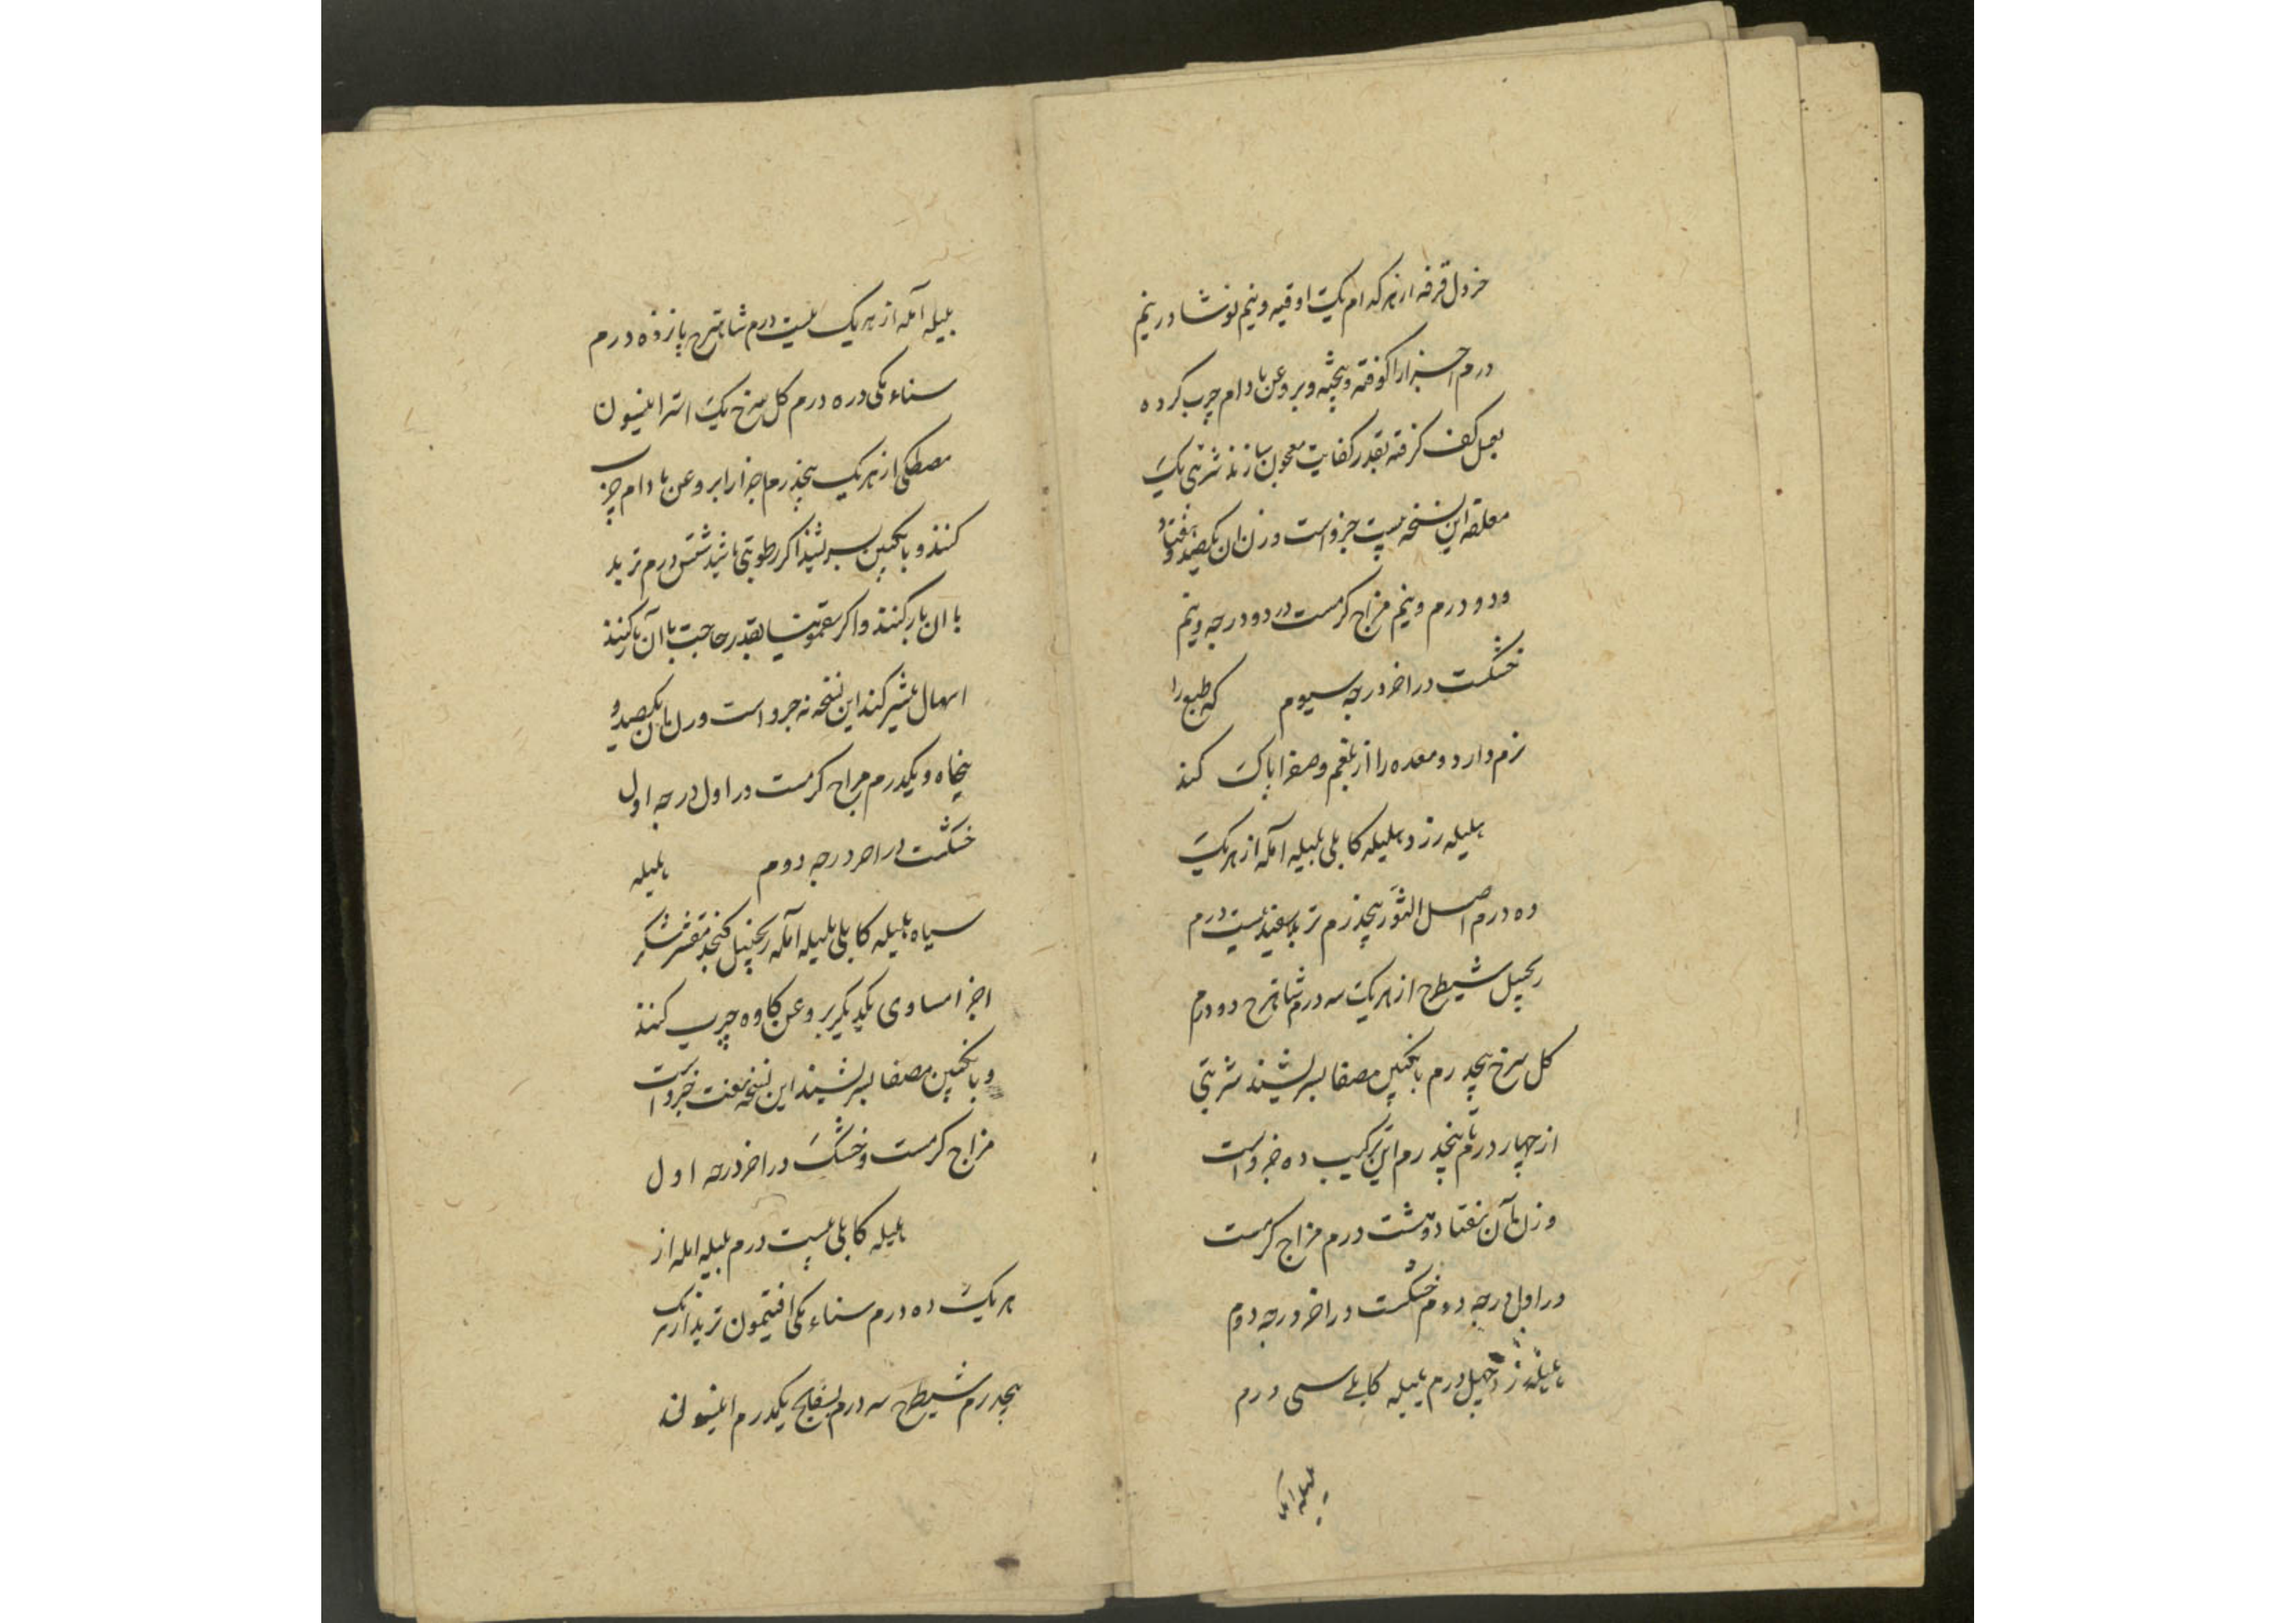 خردل قرفه از هر کدام یک اوقیه و نیم نوشادر نیم
درم اجزا را کوفته و بیخته و بروغن بادام چرب کرده
بعسل کف گرفته بقدر کفایت معجون سازند شربتی یک
معلقه این نسخه بیست جزو است وزن آن یکصد و هفتاد
و دو درم و نیم مزاج گرمست در دو درجه و نیم
خشکست در اخر درجه سیوم که طبع را
نرم دارد و معده را از بلغم و صفرا پاک کند
هلیله زرد هلیله کابلی بلیله آمله از هر یک
ده درم اصل پنجدرم تربد سفید بیست درم
زنجبیل شیطرج از هر یک سه درم شاهترج دو درم
کل سرخ پنجدرم بانگبین مصفا بسرشیند شربتی
از چهار درم تا پنجدرم این ترکیب ده جزو است
وزن آن هفتاد و هشت درم مزاج گرمست
در اول درجه دوم خشکست در اخر درجه دوم
هلیله زرد چهل درم هلیله کابلی سی درم
بلیله آمله
بلیله آمله از هر یک بیست درم شاهترج پانزده درم
سناء مکی ده درم کل سرخ یک انیسون
مصطکی از هر یک پنجدرم اجزا را بروغن بادام چرب
کنند و بانگبین بسرشند اگر رطوبتی باشد شش درم تربد
با ان یار کنند و اگر سقمونیا بقدر حاجت با آن یار کنند
اسهال بیشتر کند این نسخه نه جزو است وزن آن یکصد و
پنجاه و یکدرم مزاج گرمست در اول درجه اول
خشکست در اخر درجه دوم هلیله
سیاه هلیله کابلی بلیله آمله زنجبیل کنجد مقشر شکر
اجزا مساوی یکدیگر بروغن گاو چرب کنند
و بانگبین مصفا بسرشیند این نسخه هفت جزو است
مزاج گرمست و خشک در اخر درجه اول
هلیله کابلی بیست درم بلیله امله از
هر یک ده درم سناء مکی افتیمون تربد از هر یک
پنجدرم شیطرج سه درم بسفایج یکدرم انیسون